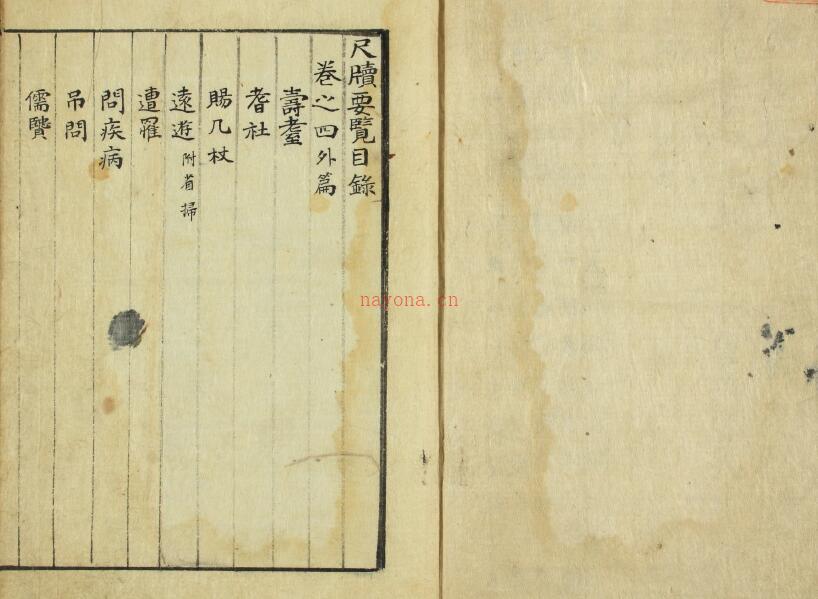 尺牘要覽目錄
卷之四外篇
壽耋
耆社
賜几杖
遠遊附省掃
遭罹
問疾病
吊問
儒贒
nayona.cn